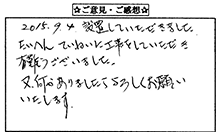 ☆ご意見・ご感想☆
2015.9.4 設置していただきました。
たいへん ていねいに工事をしていただき
有難うございました。
又、何かありましたらよろしくお願い
いたします。